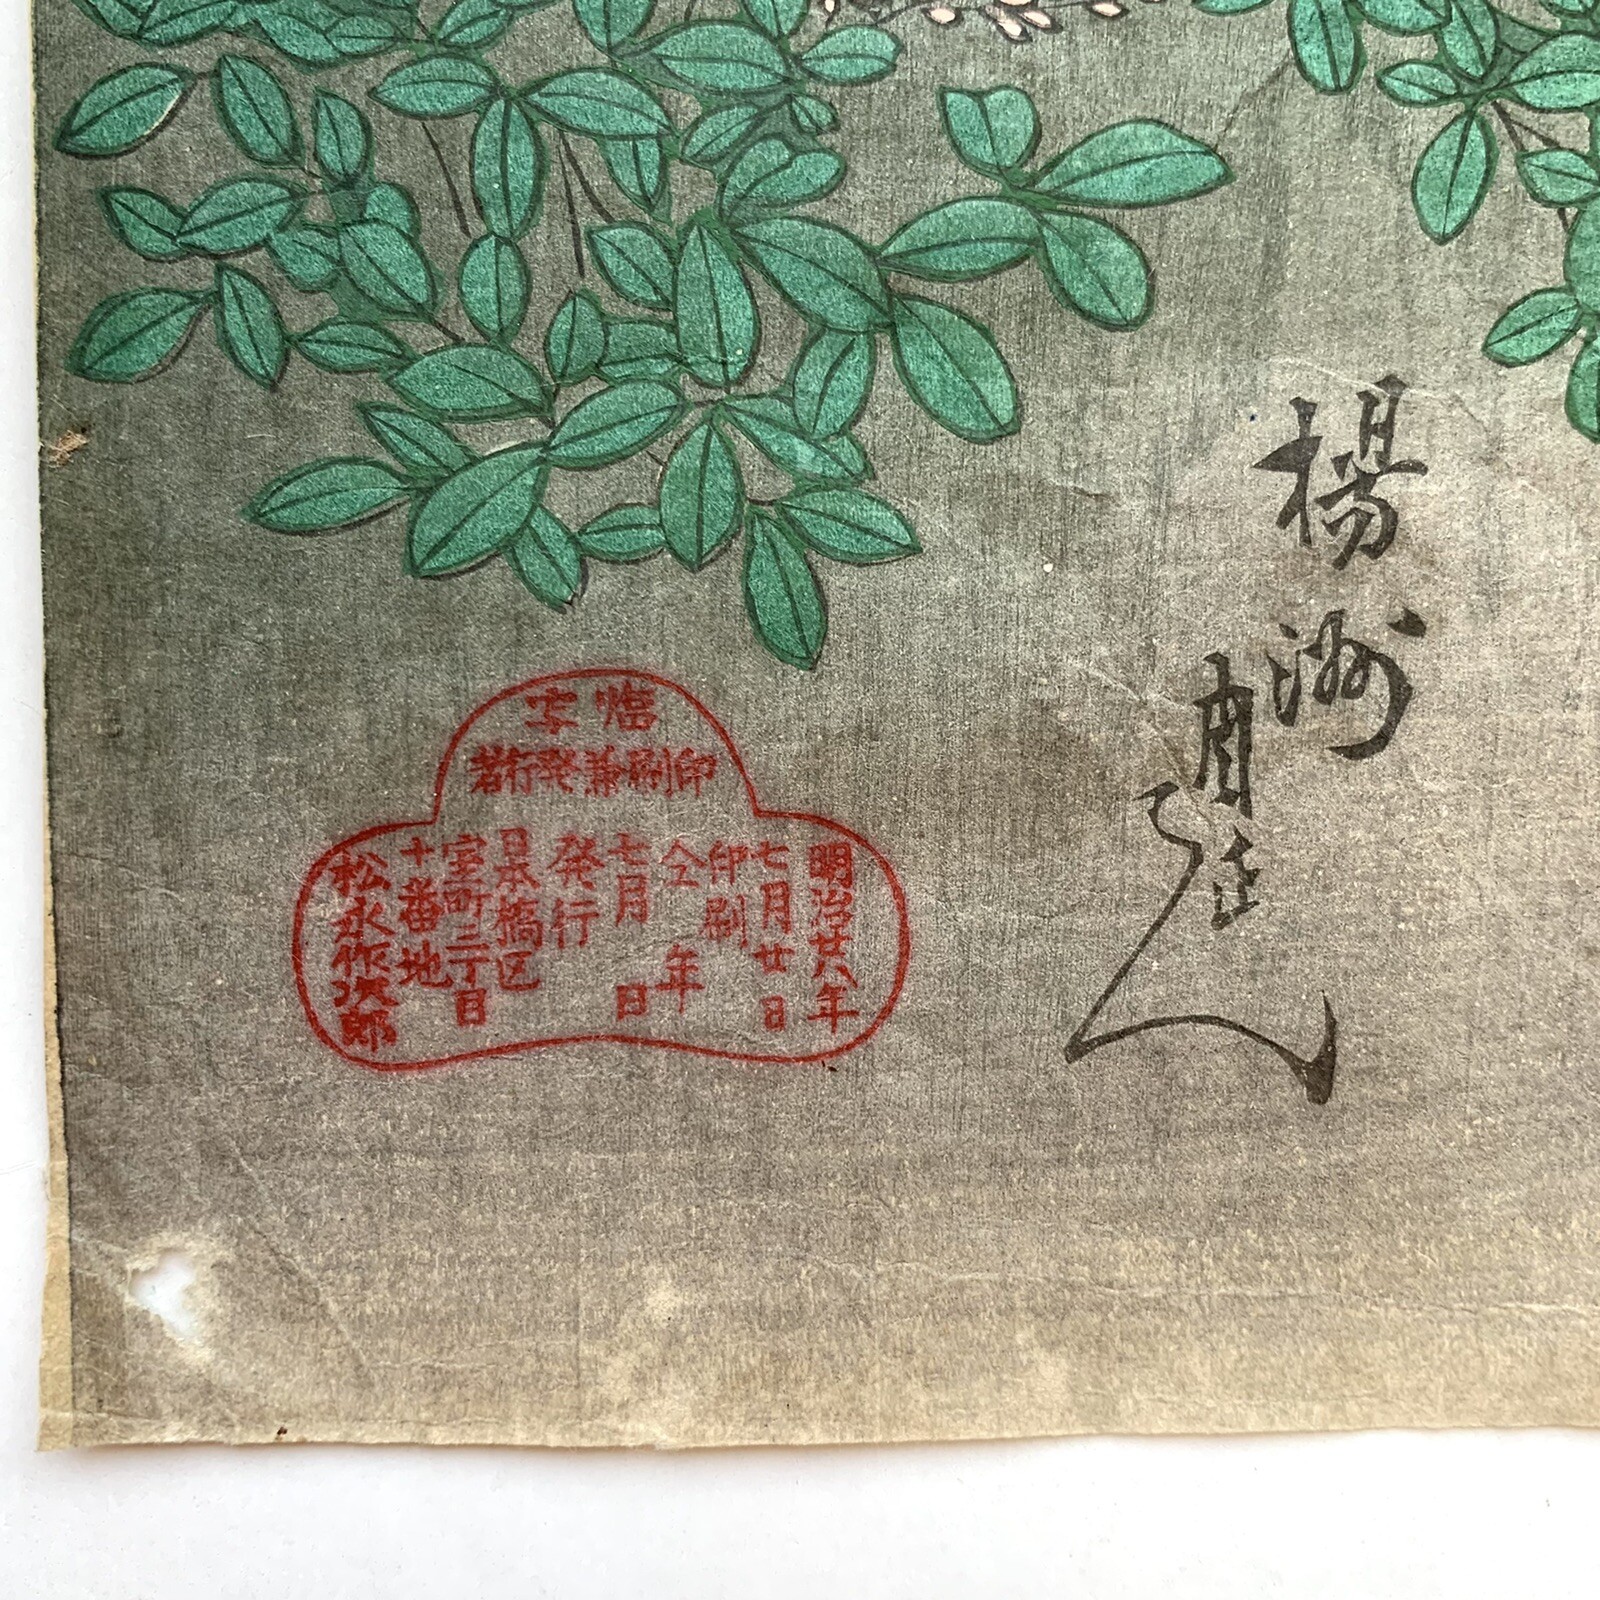 楊洲周延
臨写
印刷兼発行者
明治廿八年
七月廿日
印刷
仝年
七月　日
発行
日本橋区
室町三丁目
十番地
松永作次郎